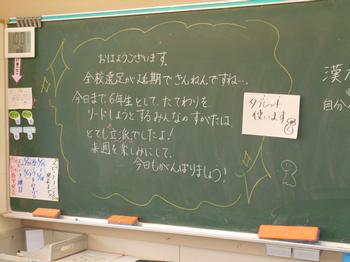 おはようございます。
全校遠足が延期でざんねんですね…。
今日まで6年生として、たてわりを
リードしようとするみんなのすがたは、
とても立派でしたよ！
来週を楽しみにして、
今日もがんばりましょう！
タブレット
使います
漢